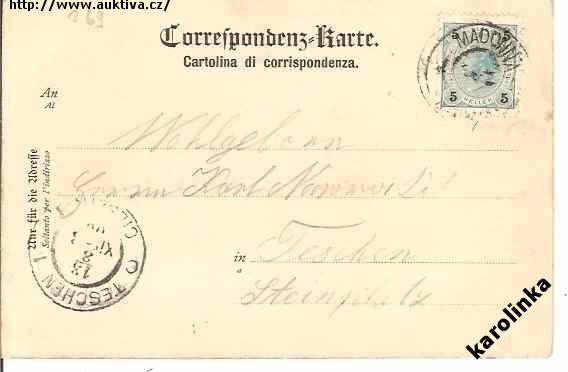 http://www.auktiva.cz/
169
Correspondenz-Karte.
Cartolina di corrispondenza.
MADONNA
5 5
5 HELLER 5
An
Al
Wohlgeboren
Herrn Karl
in Teschen
a
Steinplatz
Nur für die Adresse
Soltanto per l'indirizzo
TESCHEN 1
13
karolinka